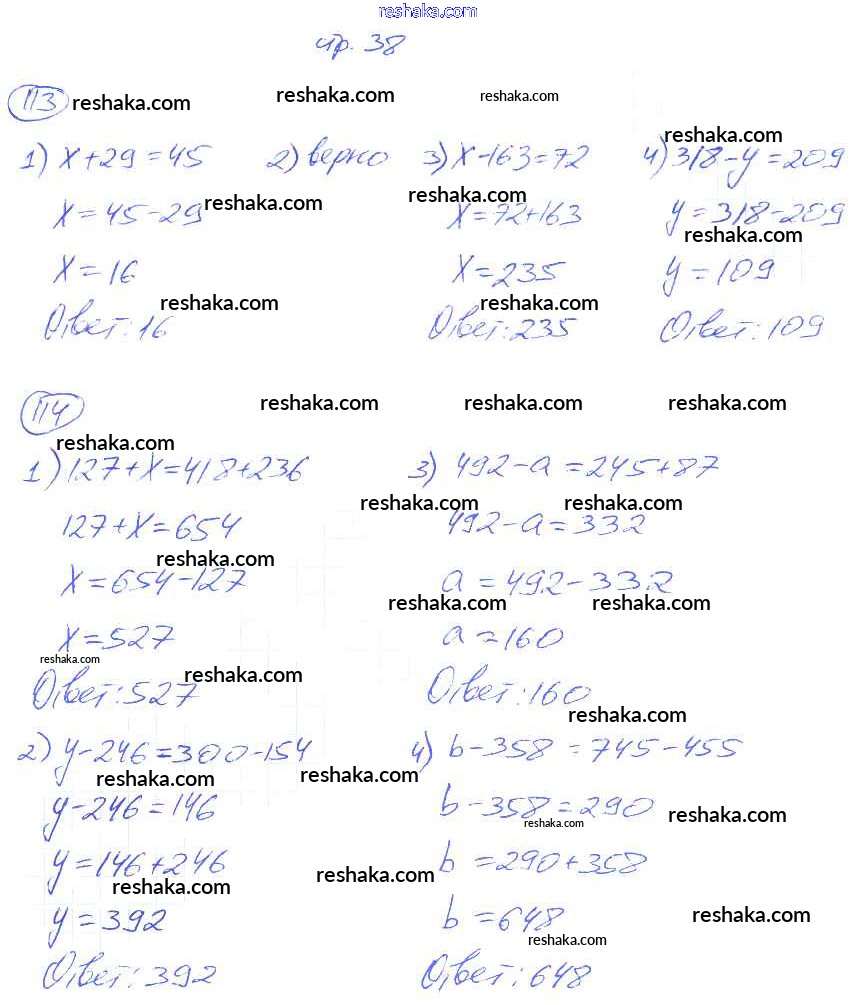 reshaka.com
стр. 38
113 reshaka.com reshaka.com reshaka.com
reshaka.com
1) x+29=45 2) верно 3) x-163=72 4) 318-y=209
reshaka.com reshaka.com
x=45-29 x=72+163 y=318-209
reshaka.com
x=16 x=235 y=109
reshaka.com reshaka.com
Ответ: 16 Ответ: 235 Ответ: 109
114 reshaka.com reshaka.com reshaka.com
reshaka.com
1) 127+x=418+236 3) 492-a=245+87
reshaka.com reshaka.com
127+x=654 492-a=332
reshaka.com
x=654-127 a=492-332
reshaka.com reshaka.com
x=527 a=160
reshaka.com reshaka.com
Ответ: 527 Ответ: 160
reshaka.com
2) y-246=300-154 4) b-358=745-455
reshaka.com reshaka.com
y-246=146 b-358=290
reshaka.com reshaka.com
y=146+246 b=290+358
reshaka.com reshaka.com
y=392 b=648
reshaka.com reshaka.com
Ответ: 392 Ответ: 648